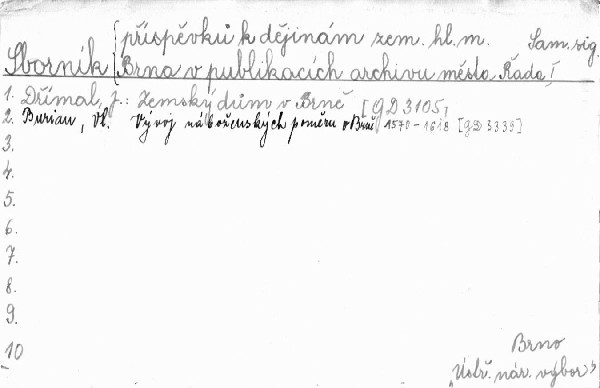 Sborník { příspěvků k dějinám zem. hl. m. Sam. sig.
Brna v publikacích archivu města Řada I
1. Dřímal, J.: Zemský dům v Brně [GD 3105]
2. Burian, Vl. Vývoj náboženských poměrů v Brně 1570-1618 [GD 3339]
3.
4.
5.
6.
7.
8.
9.
10
Brno
"Ústř. nár. výbor"